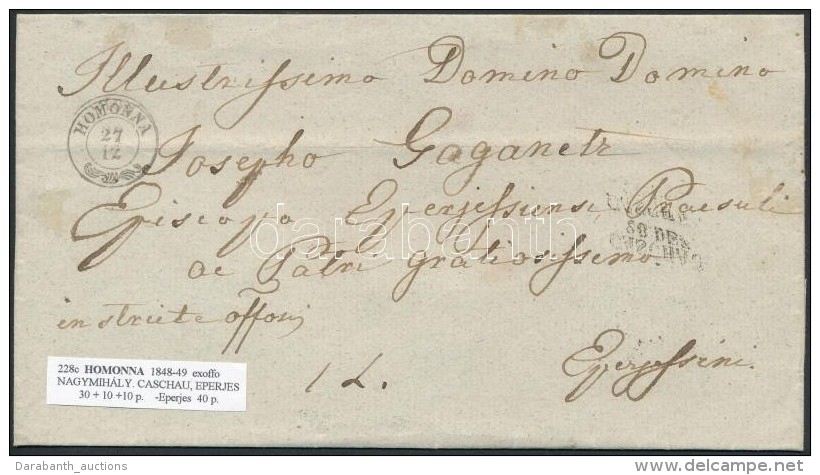 Illustrissimo Domino Domino
HOMONNA
27
12
Josepho Gaganetz
Episcopo Eperjessiensi Praesuli
ac Patri gratiosissimo
darabanth
in stricte offosi
Eperjessini.
1 L.
228c HOMONNA 1848-49 exoffo
NAGYMIHÁLY. CASCHAU, EPERJES
30 + 10 +10 p. -Eperjes 40 p.
Darabanth_auctions
delcampe.net